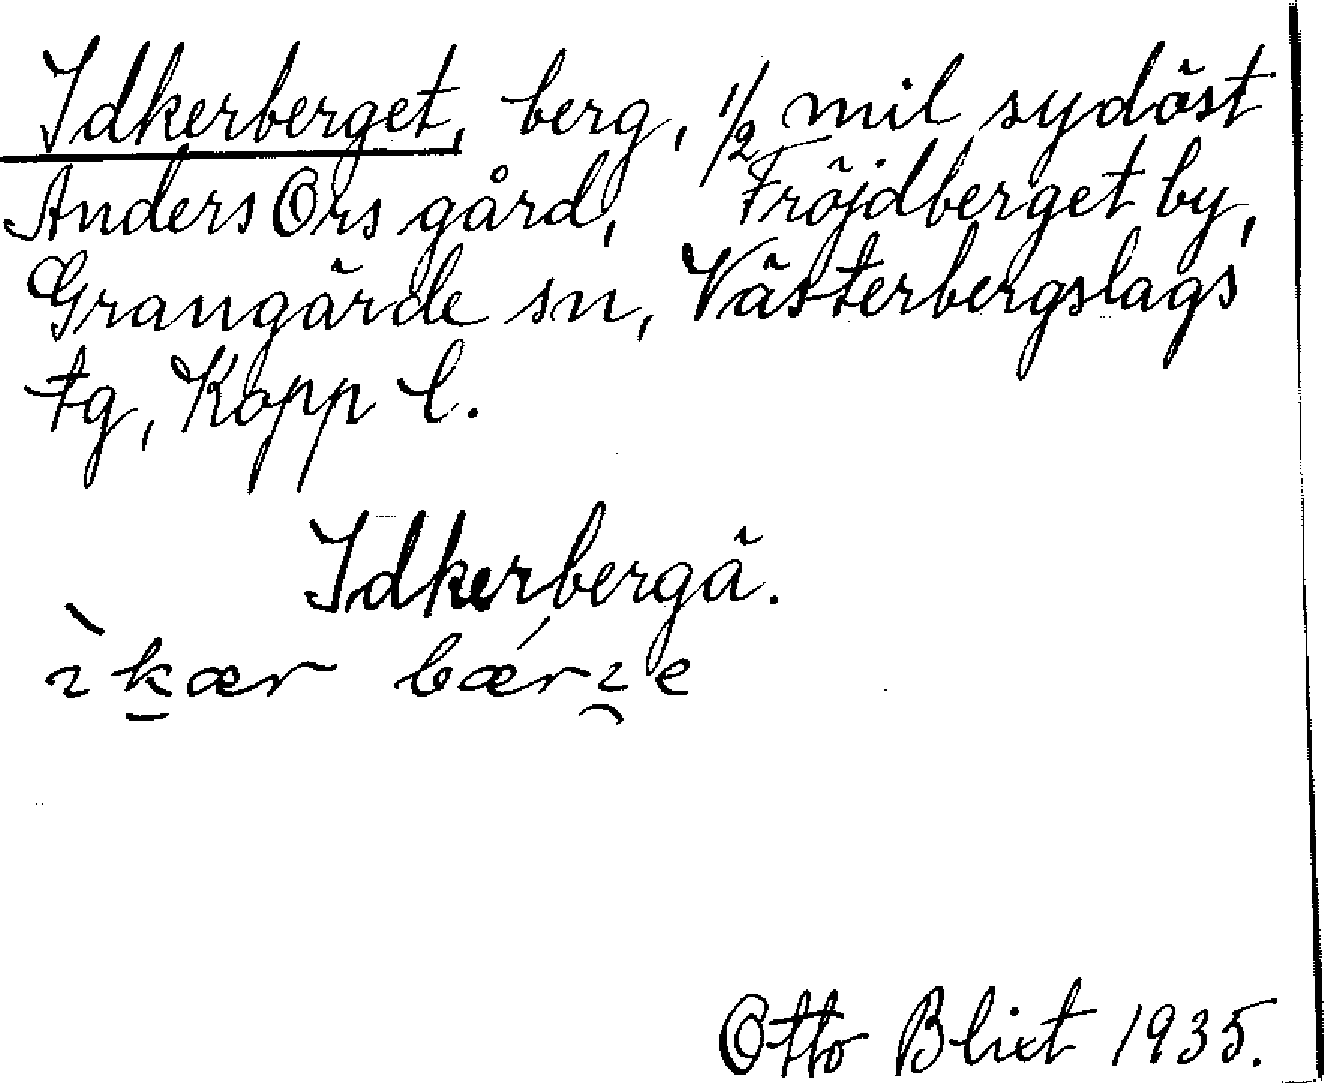 Idkerberget, berg, 1/2 mil sydöst
Anders Ors gård, Fröjdberget by,
Grangärde sn, Västerbergslags
tg, Kopp l.
Idkerbergä.
ìkær bǽrı̯e
Otto Blixt 1935.